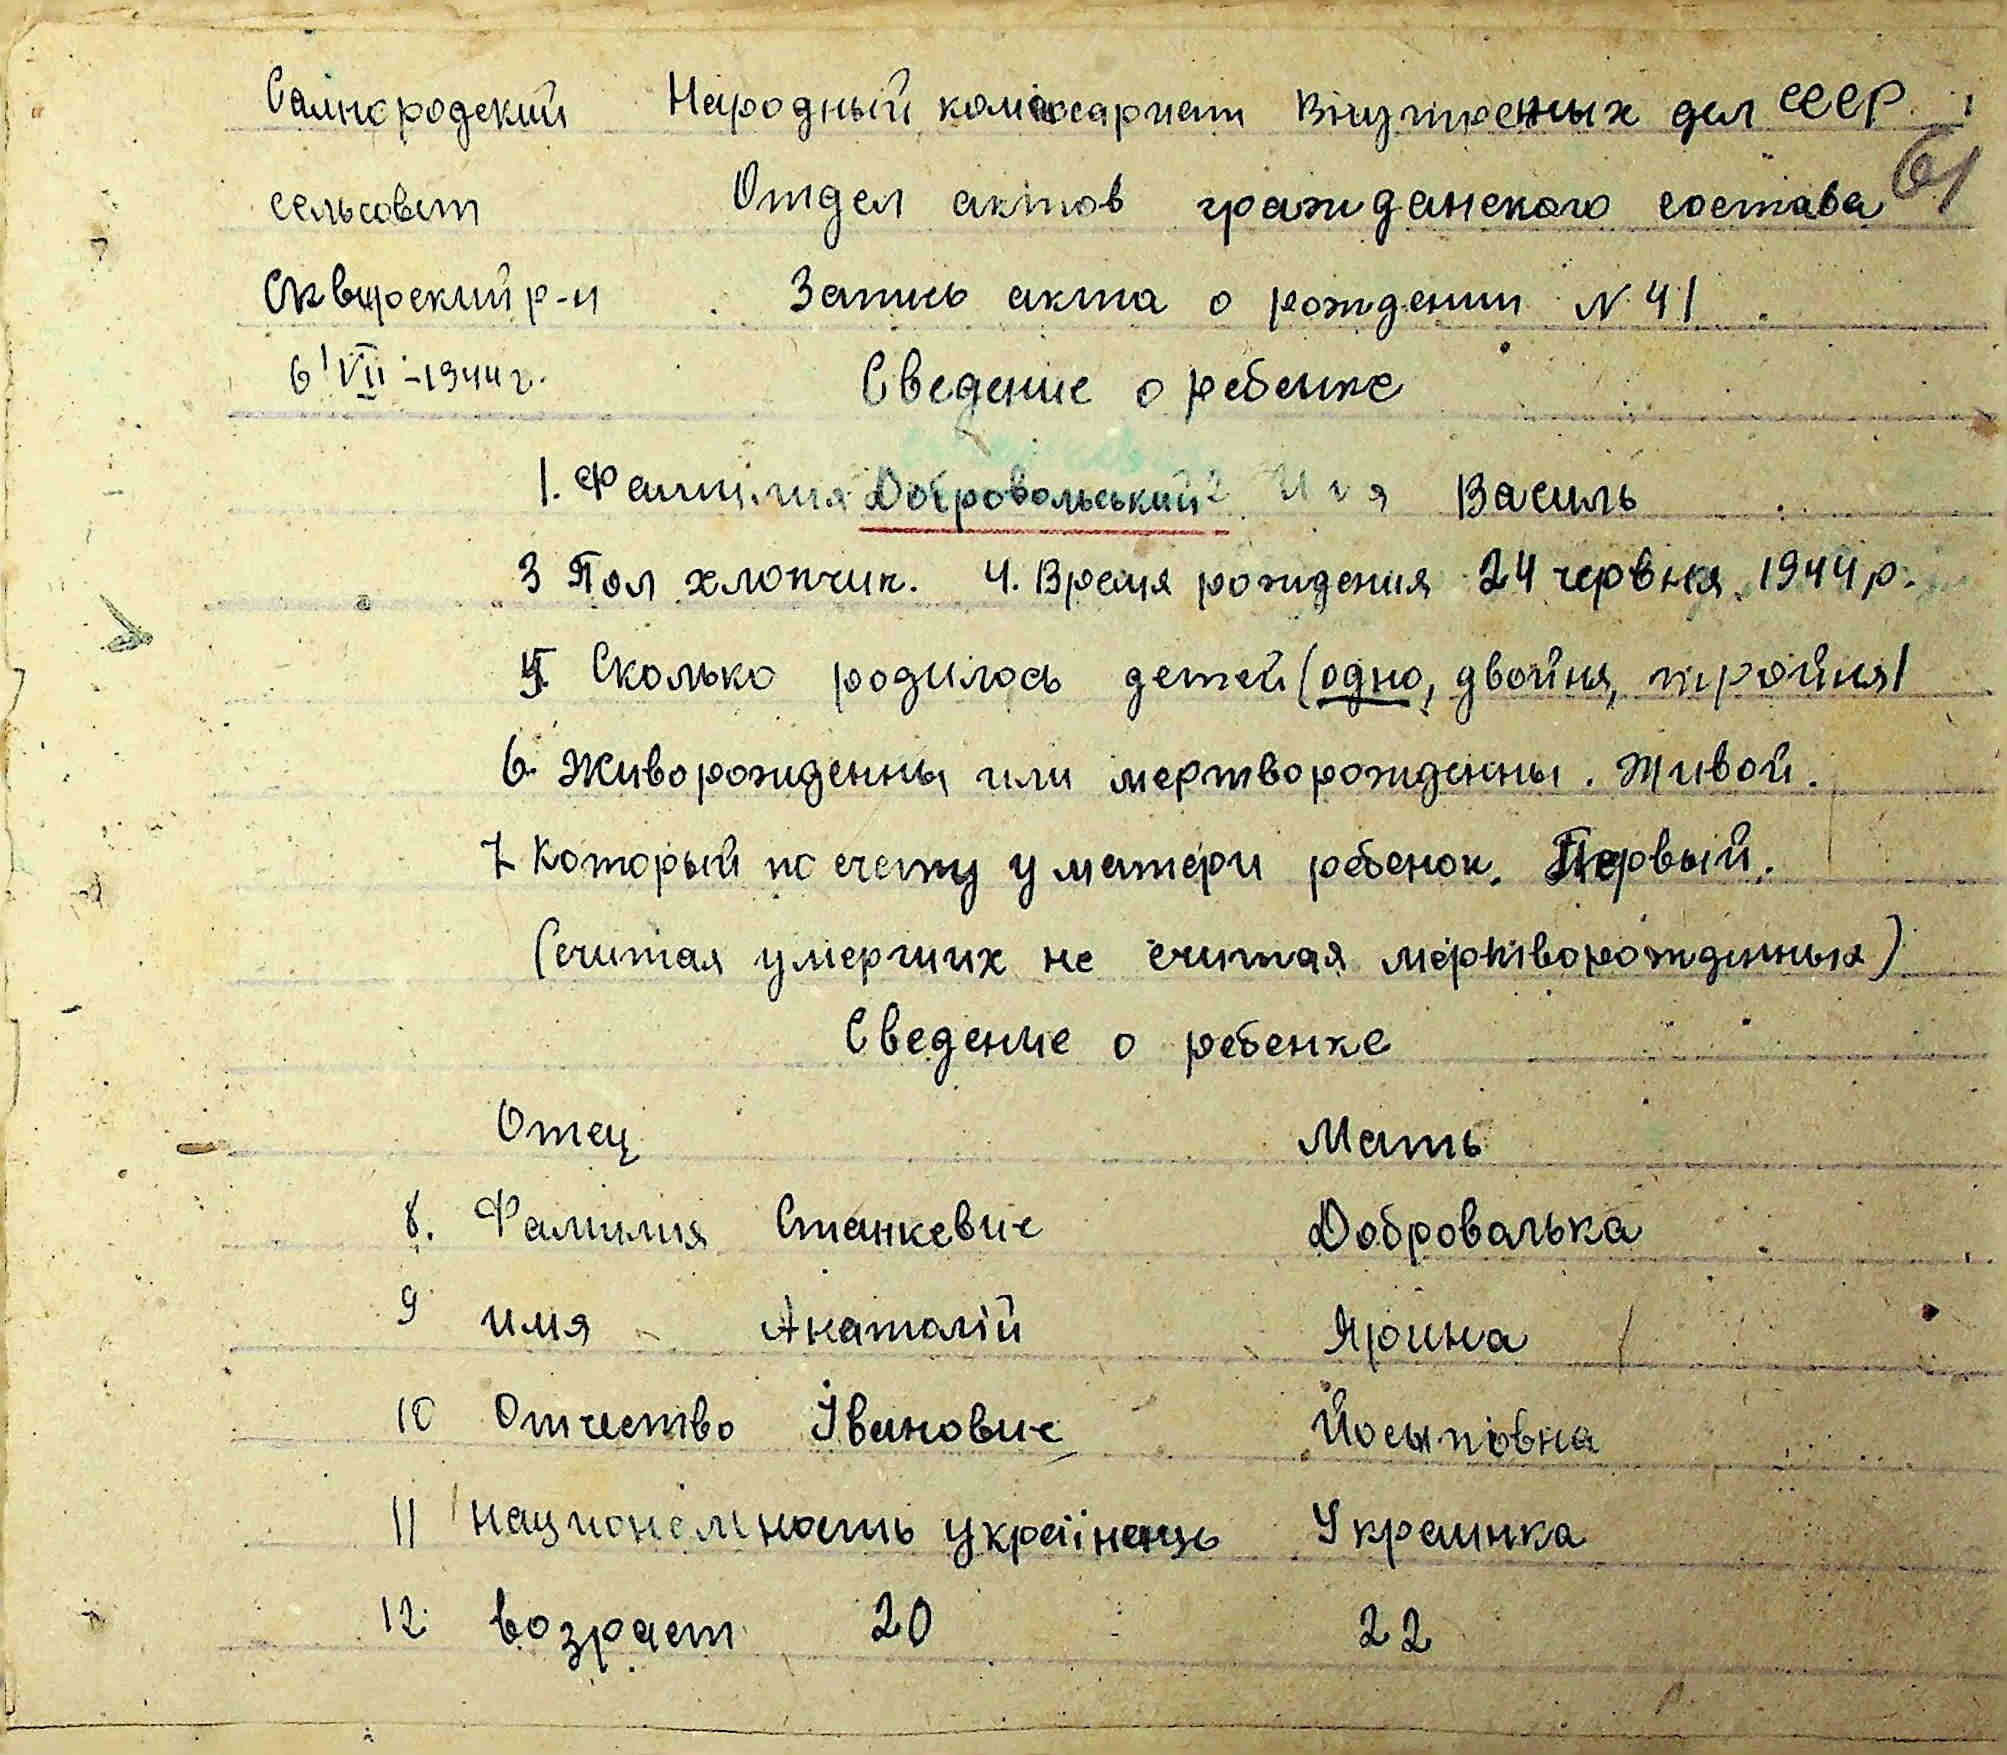 Самгородский Народный комиссариат Внутренных дел СССР
61
сельсовет Отдел актов гражданского состава
Сквирский р-н Запись акта о рождении N 41
6/VII-1944 г. Сведение о ребенке
1. Фамилия Добровольський 2 Имя Василь
3 Пол хлопчик. 4. Время рождения 24 червня 1944 р.
5 Сколько родилось детей (одно, двойня, тройня)
6. Живорожденны или мертворожденны. Живой.
7 Который по счету у матери ребенок. Первый.
(считая умерших не считая мертворожденных)
Сведение о ребенке
Отец Мать
8. Фамилия Станкевич Добровалька
9 имя Анатолій Ярина
10 Отчество Іванович Йосыповна
11 Национальность українець Украинка
12 возраст 20 22